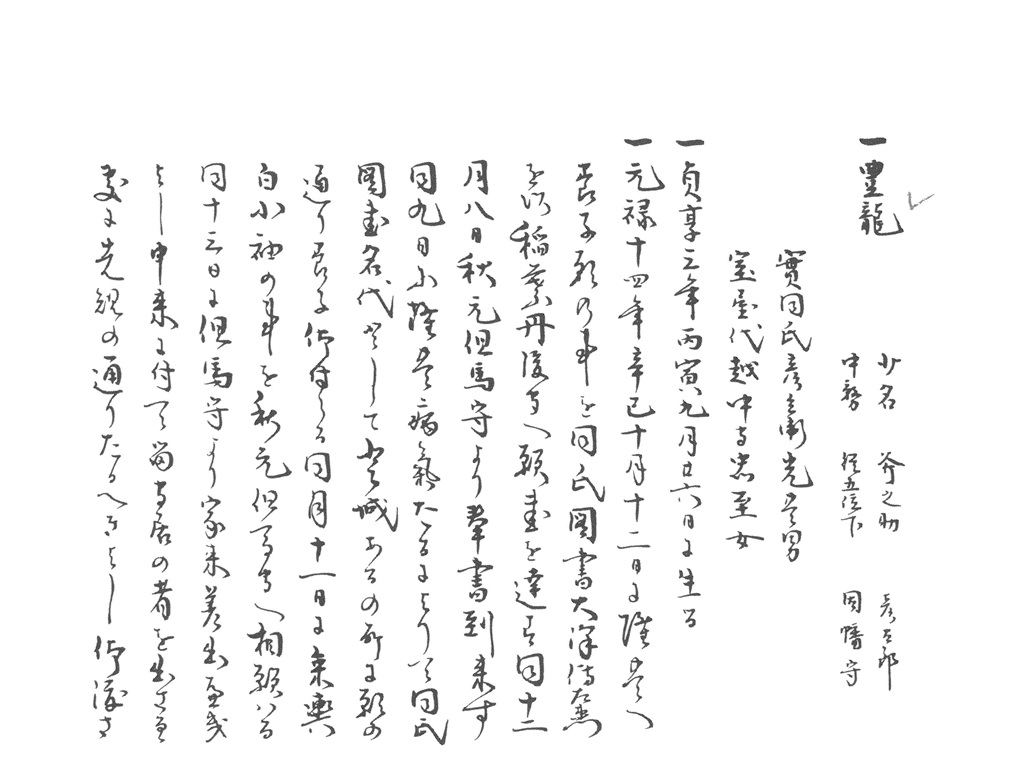 一豊龍
少名 斧之助 彦五郎
中務 従五位下 因幡守
實同氏彦兵衛光豊男
室屋代越中守忠至女
一貞享三年丙寅九月廿六日に生る
一元禄十四年辛巳十月十二日に隆豊へ
養子願の事を同氏圖書大澤侍左衛
を以稲葉丹後守へ願書を達す同十二
月八日秋元但馬守より奉書到来す
同九日小隆豊病氣たるによりて同氏
圖書名代として登城あるの所に願の
通り養子仰付らる同月十一日に乗輿
白小袖の事を秋元但馬守へ相願はる
同十三日に但馬守より家来差出
よし申来に付て留守居の者を出さる
處に先規の通りたるへきよし仰渡さ